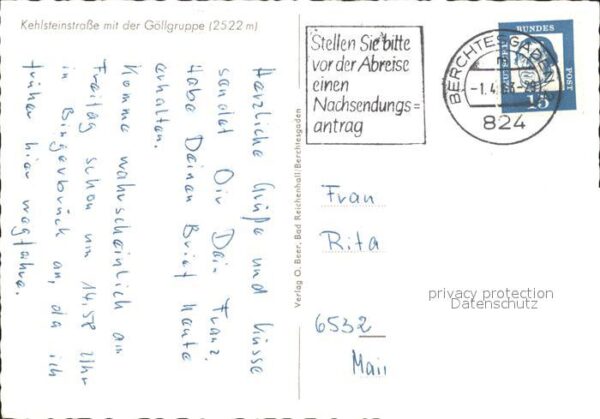 Kehlsteinstraße mit der Göllgruppe (2522 m)
Herzliche Grüße und Küsse
sendet Dir Dein Franz.
Habe Deinen Brief heute
erhalten.
Komme wahrscheinlich am
Freitag schon um 14.58 Uhr
in Bingerbrück an, da ich
früher hier wegfahre.
Verlag O. Beer, Bad Reichenhall/Berchtesgaden
Stellen Sie bitte
vor der Abreise
einen
Nachsendungs=
antrag
BERCHTESGADEN
-1.4.
824
DEUTSCHE
BUNDES
POST
15
Frau
Rita
6532
privacy protection
Datenschutz